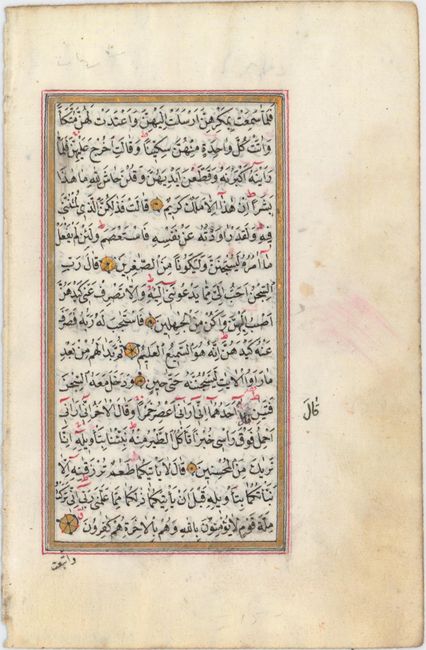 فَلَمَّا سَمِعَتْ بِمَكْرِهِنَّ اَرْسَلَتْ اِلَيْهِنَّ وَاَعْتَدَتْ لَهُنَّ مُتَّكَأً
وَاٰتَتْ كُلَّ وَاحِدَةٍ مِنْهُنَّ سِكّٖينًا وَقَالَتِ اخْرُجْ عَلَيْهِنَّ فَلَمَّا
رَاَيْنَهُ اَكْبَرْنَهُ وَقَطَّعْنَ اَيْدِيَهُنَّ وَقُلْنَ حَاشَ لِلّٰهِ مَا هٰذَا
بَشَرًا اِنْ هٰذَا اِلَّا مَلَكٌ كَرِيمٌ قَالَتْ فَذٰلِكُنَّ الَّذِي لُمْتُنَّنِي
فِيهِ وَلَقَدْ رَاوَدْتُهُ عَنْ نَفْسِهِ فَاسْتَعْصَمَ وَلَئِنْ لَمْ يَفْعَلْ
مَا اٰمُرُهُ لَيُسْجَنَنَّ وَلَيَكُونًا مِنَ الصّٰغِرِينَ قَالَ رَبِّ
السِّجْنُ اَحَبُّ اِلَيَّ مِمَّا يَدْعُونَنِي اِلَيْهِ وَاِلَّا تَصْرِفْ عَنِّي كَيْدَهُنَّ
اَصْبُ اِلَيْهِنَّ وَاَكُنْ مِنَ الْجٰهِلِينَ فَاسْتَجَابَ لَهُ رَبُّهُ فَصَرَفَ
عَنْهُ كَيْدَهُنَّ اِنَّهُ هُوَ السَّمِيعُ الْعَلِيمُ ثُمَّ بَدَا لَهُمْ مِنْ بَعْدِ
مَا رَاَوُا الْاٰيٰتِ لَيَسْجُنُنَّهُ حَتّٰى حِينٍ وَدَخَلَ مَعَهُ السِّجْنَ
فَتَيٰنِ اَحَدُهُمَا اِنِّي اَرٰينِي اَعْصِرُ خَمْرًا وَقَالَ الْاٰخَرُ اِنِّي اَرٰينِي
قَالَ
اَحْمِلُ فَوْقَ رَاْسِي خُبْزًا تَاْكُلُ الطَّيْرُ مِنْهُ نَبِّئْنَا بِتَاْوِيلِهِ اِنَّا
نَرٰيكَ مِنَ الْمُحْسِنِينَ قَالَ لَا يَاْتِيكُمَا طَعَامٌ تُرْزَقَانِهِ اِلَّا
نَبَّاْتُكُمَا بِتَاْوِيلِهِ قَبْلَ اَنْ يَاْتِيَكُمَا ذٰلِكُمَا مِمَّا عَلَّمَنِي رَبِّي اِنِّي تَرَكْتُ
مِلَّةَ قَوْمٍ لَا يُؤْمِنُونَ بِاللّٰهِ وَهُمْ بِالْاٰخِرَةِ هُمْ كٰفِرُونَ
واتبعت